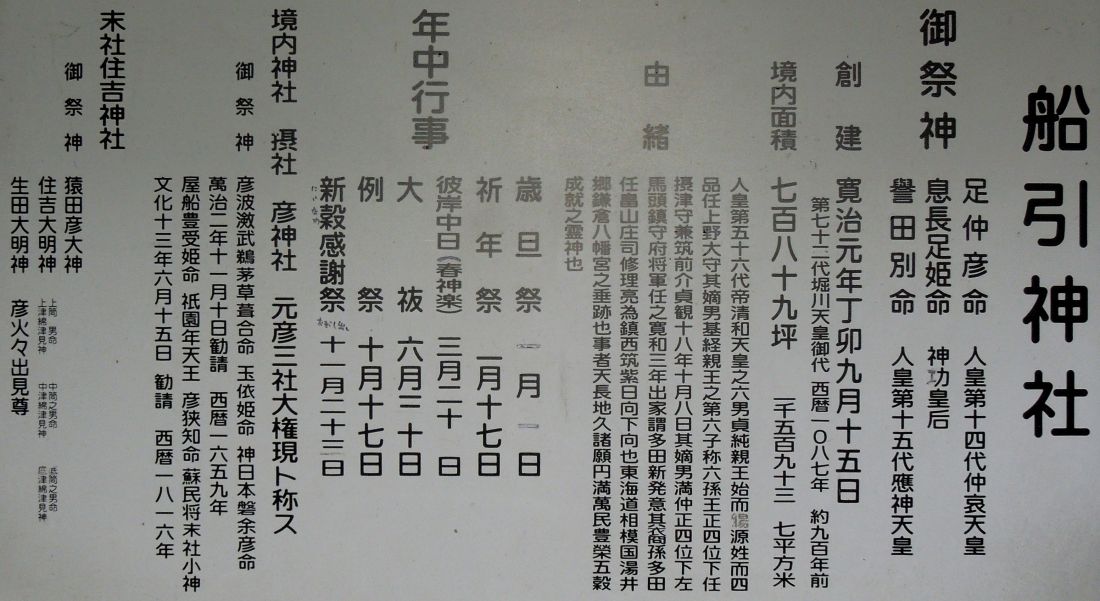 船引神社
御祭神
足仲彦命 人皇第十四代仲哀天皇
息長足姫命 神功皇后
譽田別命 人皇第十五代應神天皇
創建 寛治元年丁卯九月十五日
第七十二代堀川天皇御代 西暦一〇八七年 約九百年前
境内面積 七百八十九坪 二千五百九十三 七平方米
由緒
人皇第五十六代帝清和天皇之六男貞純親王始而賜源姓而四
品任上野大守其嫡男基経親王之第六子称六孫王正四位下任
摂津守兼筑前介貞観十八年十月八日其嫡男満仲正四位下左
馬頭鎮守府将軍任之寛和三年出家謂多田新発意其裔孫多田
任畠山庄司修理亮為鎮西筑紫日向下向也東海道相模国湯井
郷鎌倉八幡宮之垂跡也事者天長地久諸願円満萬民豊榮五穀
成就之霊神也
年中行事
歳旦祭 一月一日
祈年祭 一月十七日
彼岸中日(春神楽) 三月二十日
大祓 六月三十日
例祭 十月十七日
新穀感謝祭 十一月二十三日
境内神社 摂社 彦神社 元彦三社大権現ト称ス
御祭神
彦波激武鵜茅草葺合命 玉依姫命 神日本磐余彦命
萬治二年十一月十日勧請 西暦一六五九年
屋船豊受姫命 祇園年天王 彦狭知命 蘇民将末社小神
文化十三年六月十五日 勧請 西暦一八一六年
末社住吉神社
御祭神
猿田彦大神
住吉大明神 上筒男命 中筒之男命 底筒之男命
上津綿津見神 中津綿津見神 底津綿津見神
生田大明神 彦火々出見尊